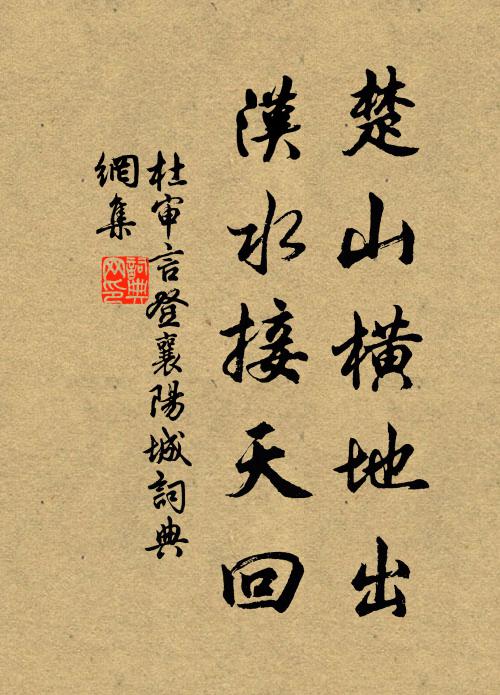 楚山横地出
漢水接天回
杜审言登襄陽城詞典
網集
詞典
网印